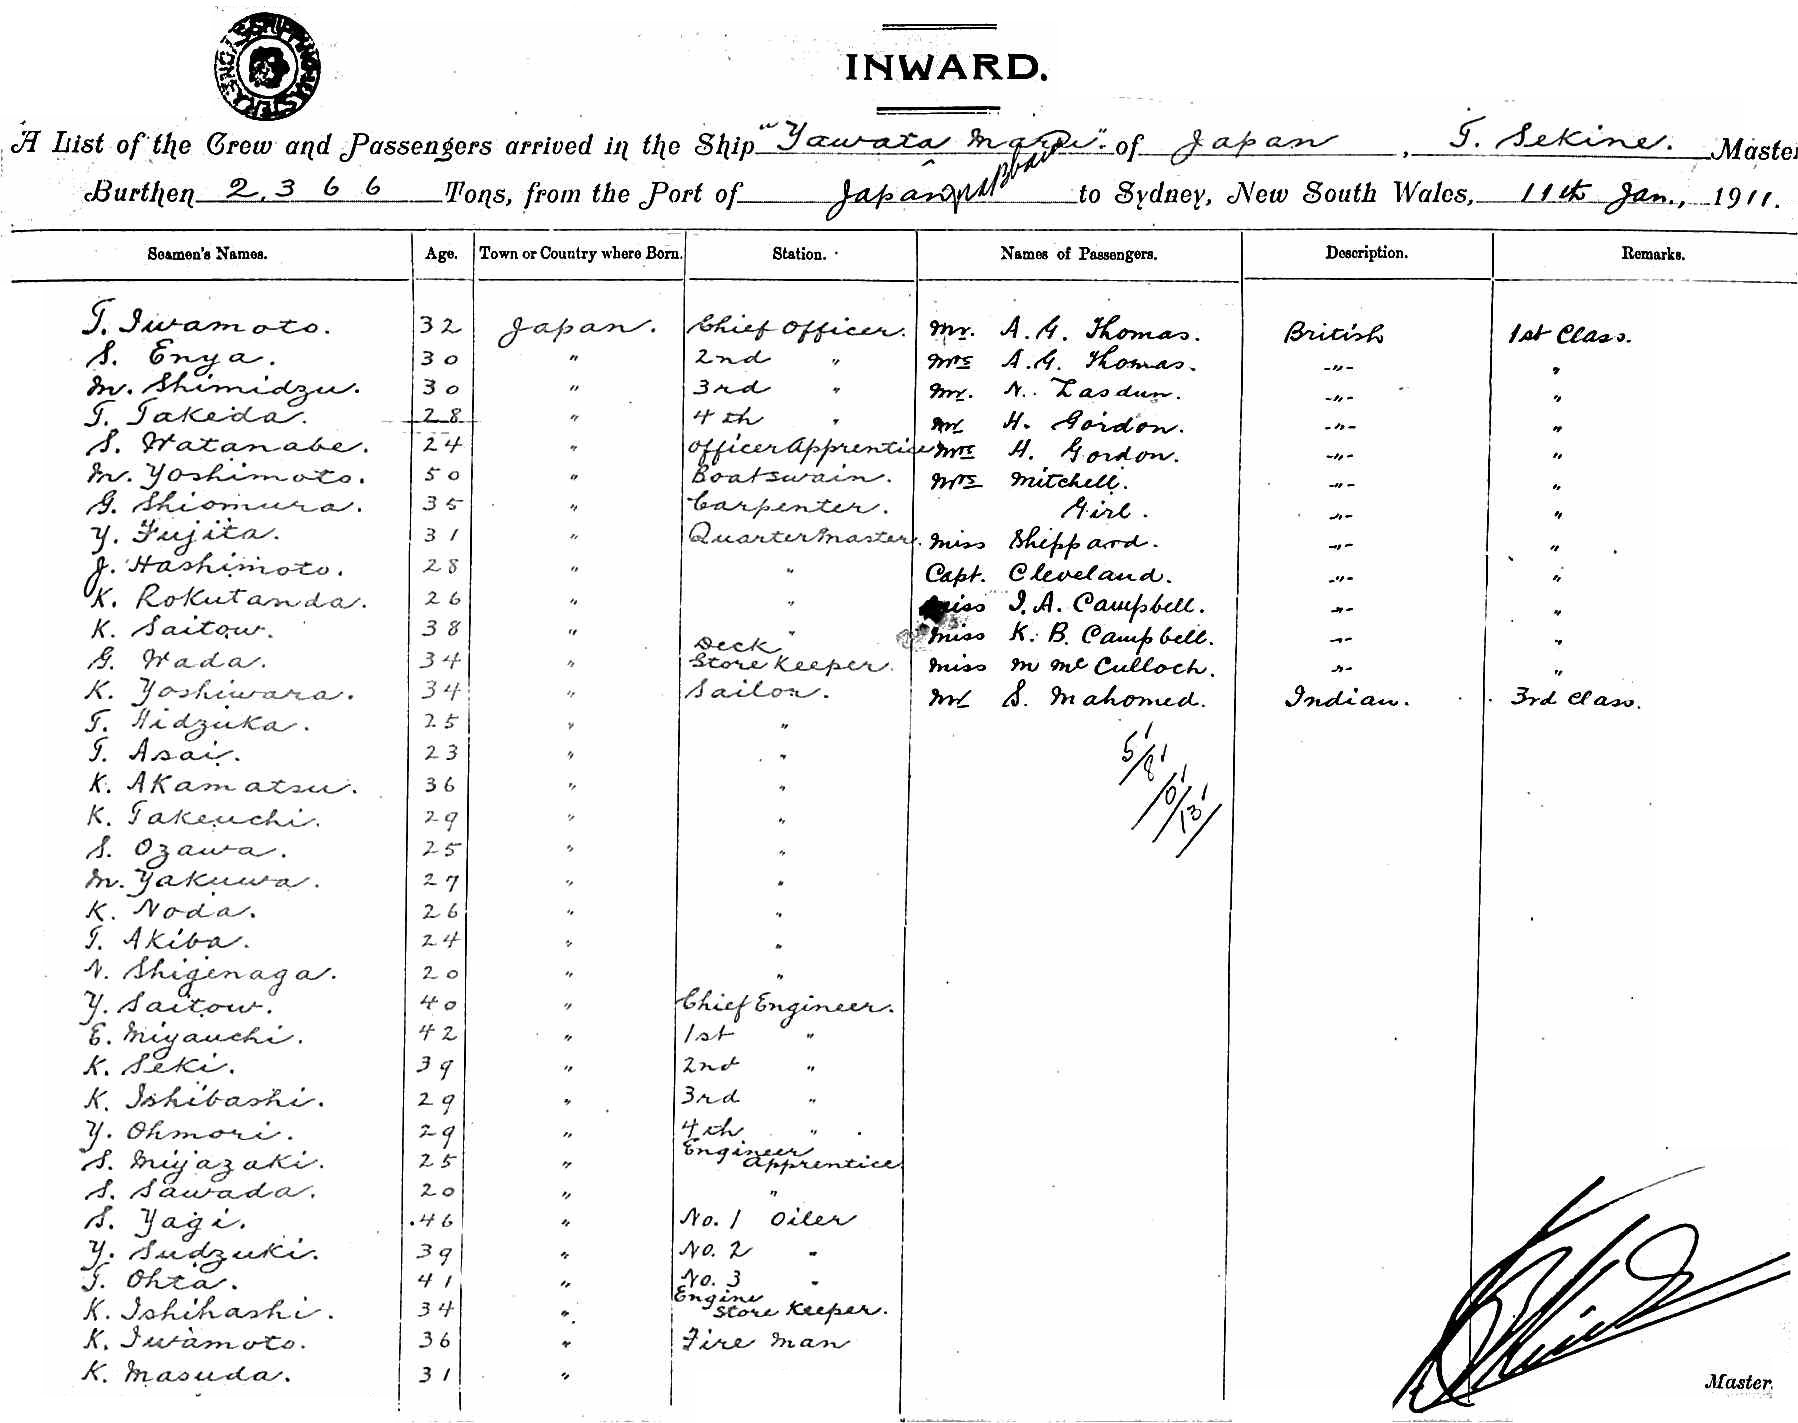 INWARD.
A List of the Crew and Passengers arrived in the Ship "Yawata Maru" of Japan, T. Sekine. Master
Burthen 2,366 Tons, from the Port of Japan to Sydney, New South Wales, 11th Jan., 1911.
Seamen's Names. Age. Town or Country where Born. Station. Names of Passengers. Description. Remarks.
T. Iwamoto. 32 Japan. Chief Officer. Mr. A. G. Thomas. British 1st Class.
S. Enya. 30 " 2nd " Mrs A. G. Thomas. -"- "
M. Shimidzu. 30 " 3rd " Mr. N. Lasdun. -"- "
T. Takeda. 28 " 4th " Mr H. Gordon. -"- "
S. Watanabe. 24 " Officer Apprentice Mrs H. Gordon. -"- "
M. Yoshimoto. 50 " Boatswain. Mrs Mitchell. -"- "
G. Shiomura. 35 " Carpenter. Girl. -"- "
Y. Fujita. 31 " Quarter Master. Miss Sheppard. -"- "
J. Hashimoto. 28 " " Capt. Cleveland. -"- "
K. Rokutanda. 26 " " Miss I. A. Campbell. -"- "
K. Saitow. 38 " " Miss K. B. Campbell. -"- "
G. Wada. 34 " Deck Store Keeper. Miss M Mc Culloch. -"- "
K. Yoshiwara. 34 " Sailor. Mr S. Mahomed. Indian. 3rd Class.
T. Hidzuka. 25 " "
T. Asai. 23 " "
K. Akamatsu. 36 " "
K. Takeuchi. 29 " "
S. Ozawa. 25 " "
M. Yakuwa. 27 " "
K. Noda. 26 " "
T. Akiba. 24 " "
N. Shigenaga. 20 " "
Y. Saitow. 40 " Chief Engineer.
E. Miyauchi. 42 " 1st "
K. Seki. 39 " 2nd "
K. Ishibashi. 29 " 3rd "
Y. Ohmori. 29 " 4th "
S. Miyazaki. 25 " Engineer Apprentice
S. Sawada. 20 " "
S. Yagi. 46 " No. 1 Oiler
Y. Sudzuki. 39 " No. 2 "
T. Ohta. 41 " No. 3 "
K. Ishihashi. 34 " Engine Store Keeper.
K. Iwamoto. 36 " Fire man
K. Masuda. 31 "
Master